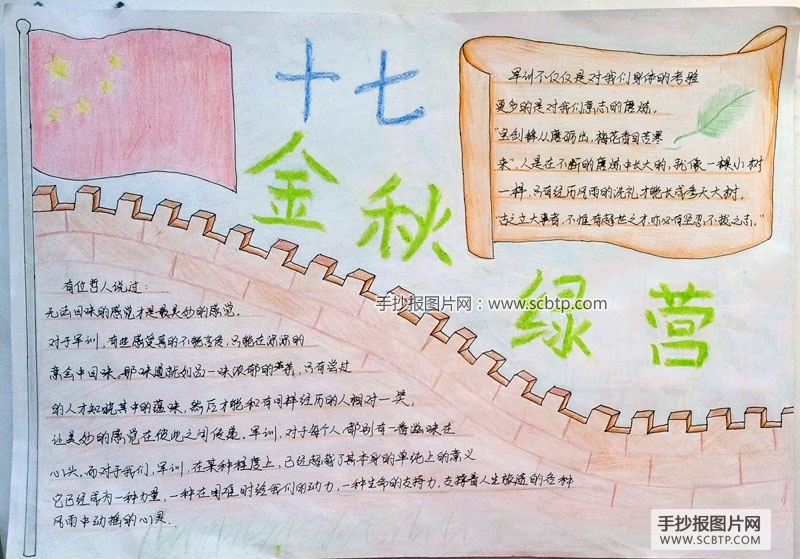 十七
金秋
绿营
军训不仅仅是对我们身体的考验
更多的是对我们意志的磨炼。
"宝剑锋从磨砺出，梅花香自苦寒
来"，人是在不断的磨炼中长大的，就像一棵小树
一样，只有经历风雨的洗礼才能长成参天大树。
"古之立大事者，不惟有超世之才，亦必有坚忍不拔之志。"
手抄报图片网：www.scbtp.com
有位哲人说过：
无法回味的感觉才是最美妙的感觉。
对于军训，有些感受真的不能言度，只能在深深的
意会中回味。那味道就如品一味浓郁的香茗，只有尝过
的人才知晓其中的蕴味，然后才能和有同样经历的人相对一笑，
让美妙的感觉在彼此之间传递。军训，对于每个人都别有一番滋味在
心头。而对于我们，军训，在某种程度上，已经超越了其本身的单纯上的意义
它已经成为一种力量，一种在困难时给我们的动力，一种生命的支持力，支撑着人生旅途的各种
风雨中动摇的心灵.
手抄报图片网
WWW.SCBTP.COM